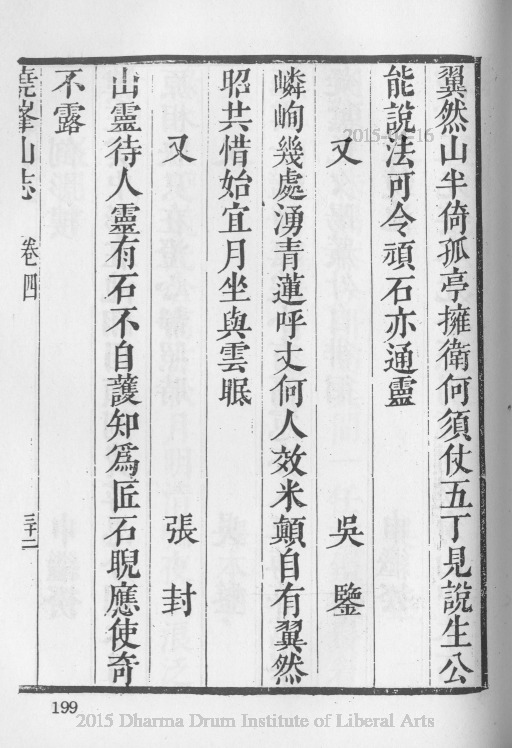 翼然山半倚孤亭擁衛何須仗五丁見說生公
能說法可令頑石亦通靈
又 吳鑒
嶙峋幾處湧青蓮呼丈何人效米顛自有翼然
昭共惜始宜月坐與雲眠
又 張封
山靈待人靈有石不自護知為匠石睨應使奇
不露
堯峯山志 卷四 三十二
199
2015 Dharma Drum Institute of Liberal Arts